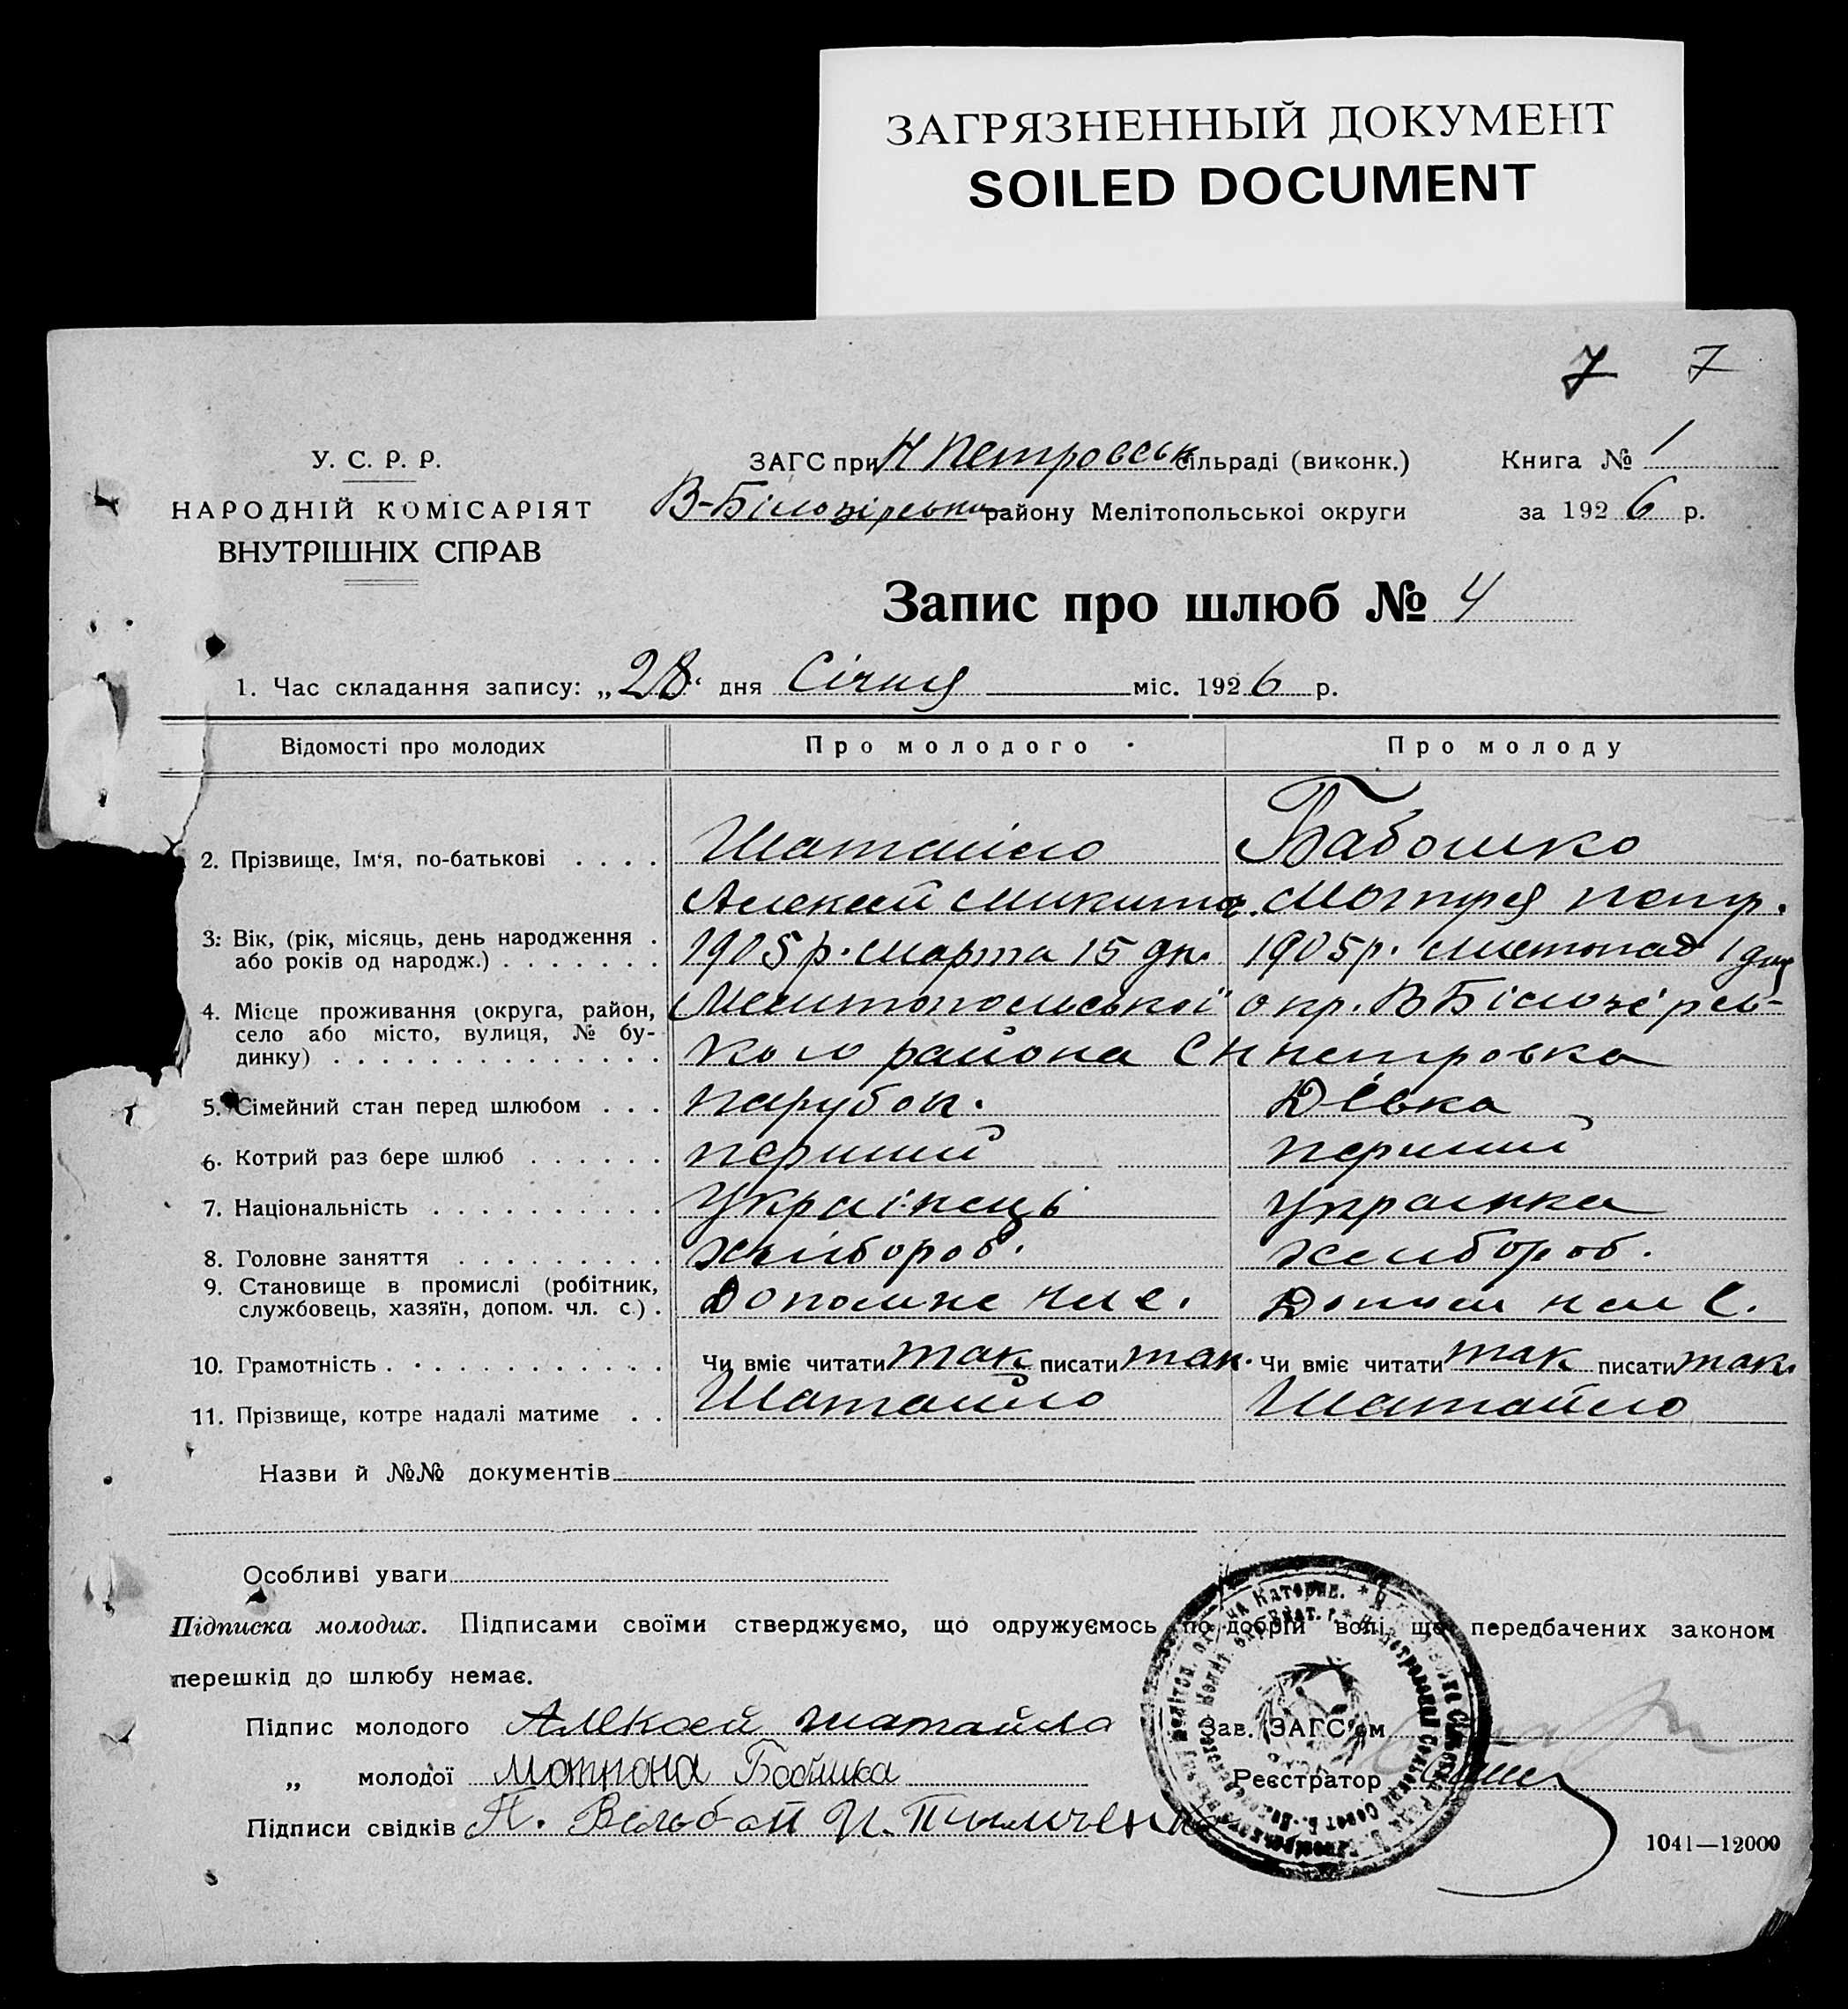 ЗАГРЯЗНЕННЫЙ ДОКУМЕНТ
SOILED DOCUMENT
7 7
У. С. Р. Р.
НАРОДНІЙ КОМІСАРІЯТ
ВНУТРІШНІХ СПРАВ
ЗАГС при Н Петровськ сільраді (виконк.)
В-Білозірськи району Мелітопольської округи
Книга № 1
за 1926 р.
Запис про шлюб № 4
1. Час складання запису: „28“ дня Січня міс. 1926 р.
Відомості про молодих Про молодого Про молоду
2. Прізвище, Ім‘я, по-батькові Шатайло Бабошко
Алексей Микит. Мотря петр.
3. Вік, (рік, місяць, день народження або років од народж.) 1905 р. марта 15 дн. 1905 р. листопад 1 дня
4. Місце проживання (округа, район, Мелитопольської окр. В Білозерсь-
село або місто, вулиця, № будинку) кого района С Н петровка
5. Сімейний стан перед шлюбом парубок. Дівка
6. Котрий раз бере шлюб перший перший
7. Національність Українець Украинка
8. Головне заняття хлібороб. хлибороб.
9. Становище в промислі (робітник,
службовець, хазяїн, допом. чл. с.)
10. Грамотність Чи вміє читати так писати так. Чи вміє читати так писати так.
11. Прізвище, котре надалі матиме Шатайло Шатайло
Назви й №№ документів
Особливі уваги
Підписка молодих. Підписами своїми стверджуємо, що одружуємось по добрій волі, що передбачених законом
перешкід до шлюбу немає.
Підпис молодого Алексей шатайло
„ молодої Матрона
Підписи свідків
Зав. ЗАГС‘ом
Реєстратор
1041—12000